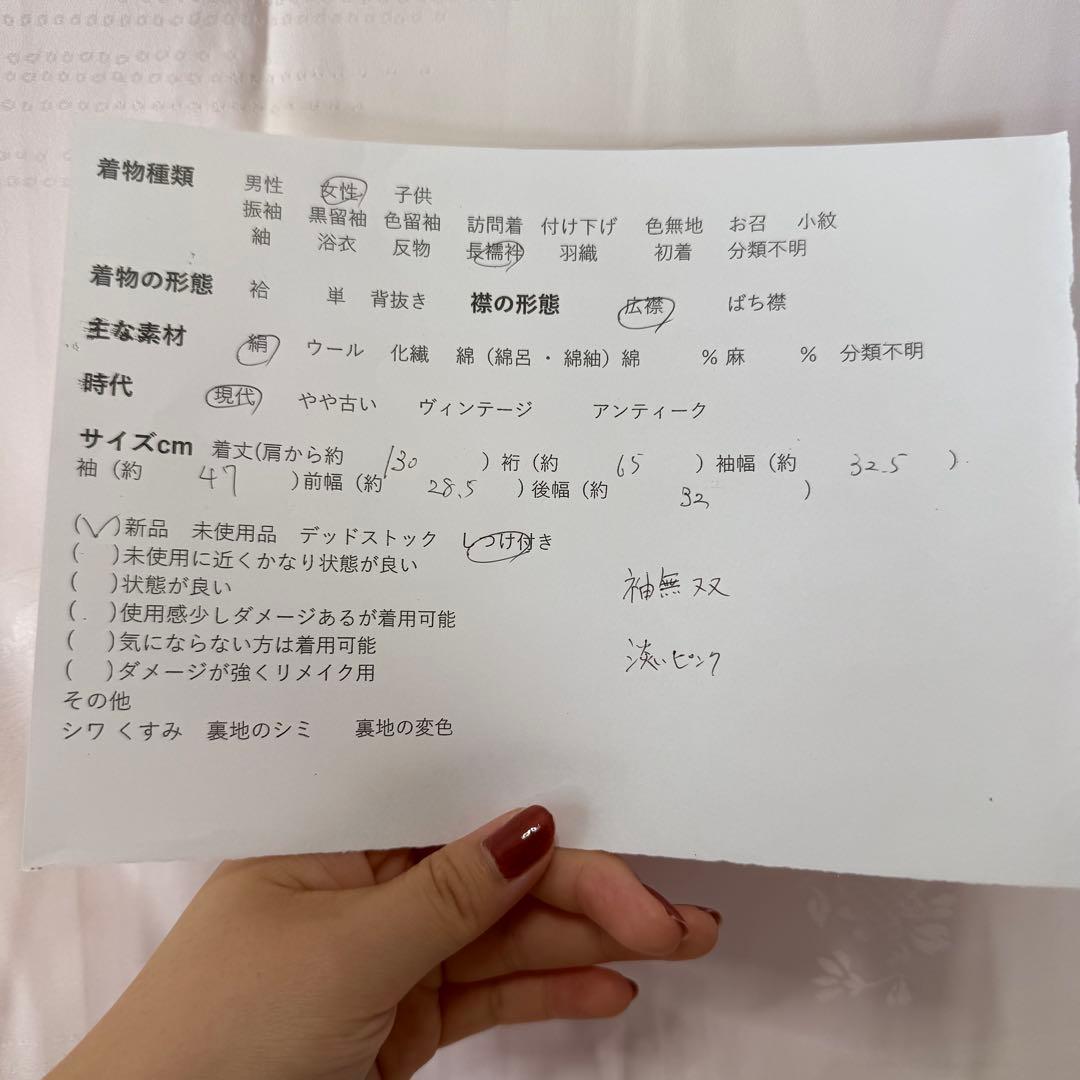 着物種類 男性 女性 子供
振袖 黒留袖 色留袖 訪問着 付け下げ 色無地 お召 小紋
紬 浴衣 反物 長襦袢 羽織 初着 分類不明
着物の形態 袷 単 背抜き 襟の形態 広襟 ばち襟
主な素材 絹 ウール 化繊 綿（綿呂・綿紬）綿 ％麻 ％ 分類不明
時代 現代 やや古い ヴィンテージ アンティーク
サイズcm 着丈(肩から約 130 ）裄（約 65 ）袖幅（約 32.5 ）
袖（約 47 )前幅（約 28.5 ）後幅（約 32 ）
(✓)新品 未使用品 デッドストック しつけ付き
( )未使用に近くかなり状態が良い
( )状態が良い
( )使用感少しダメージあるが着用可能
( )気にならない方は着用可能
( )ダメージが強くリメイク用
その他
シワ くすみ 裏地のシミ 裏地の変色
袖無双
淡いピンク